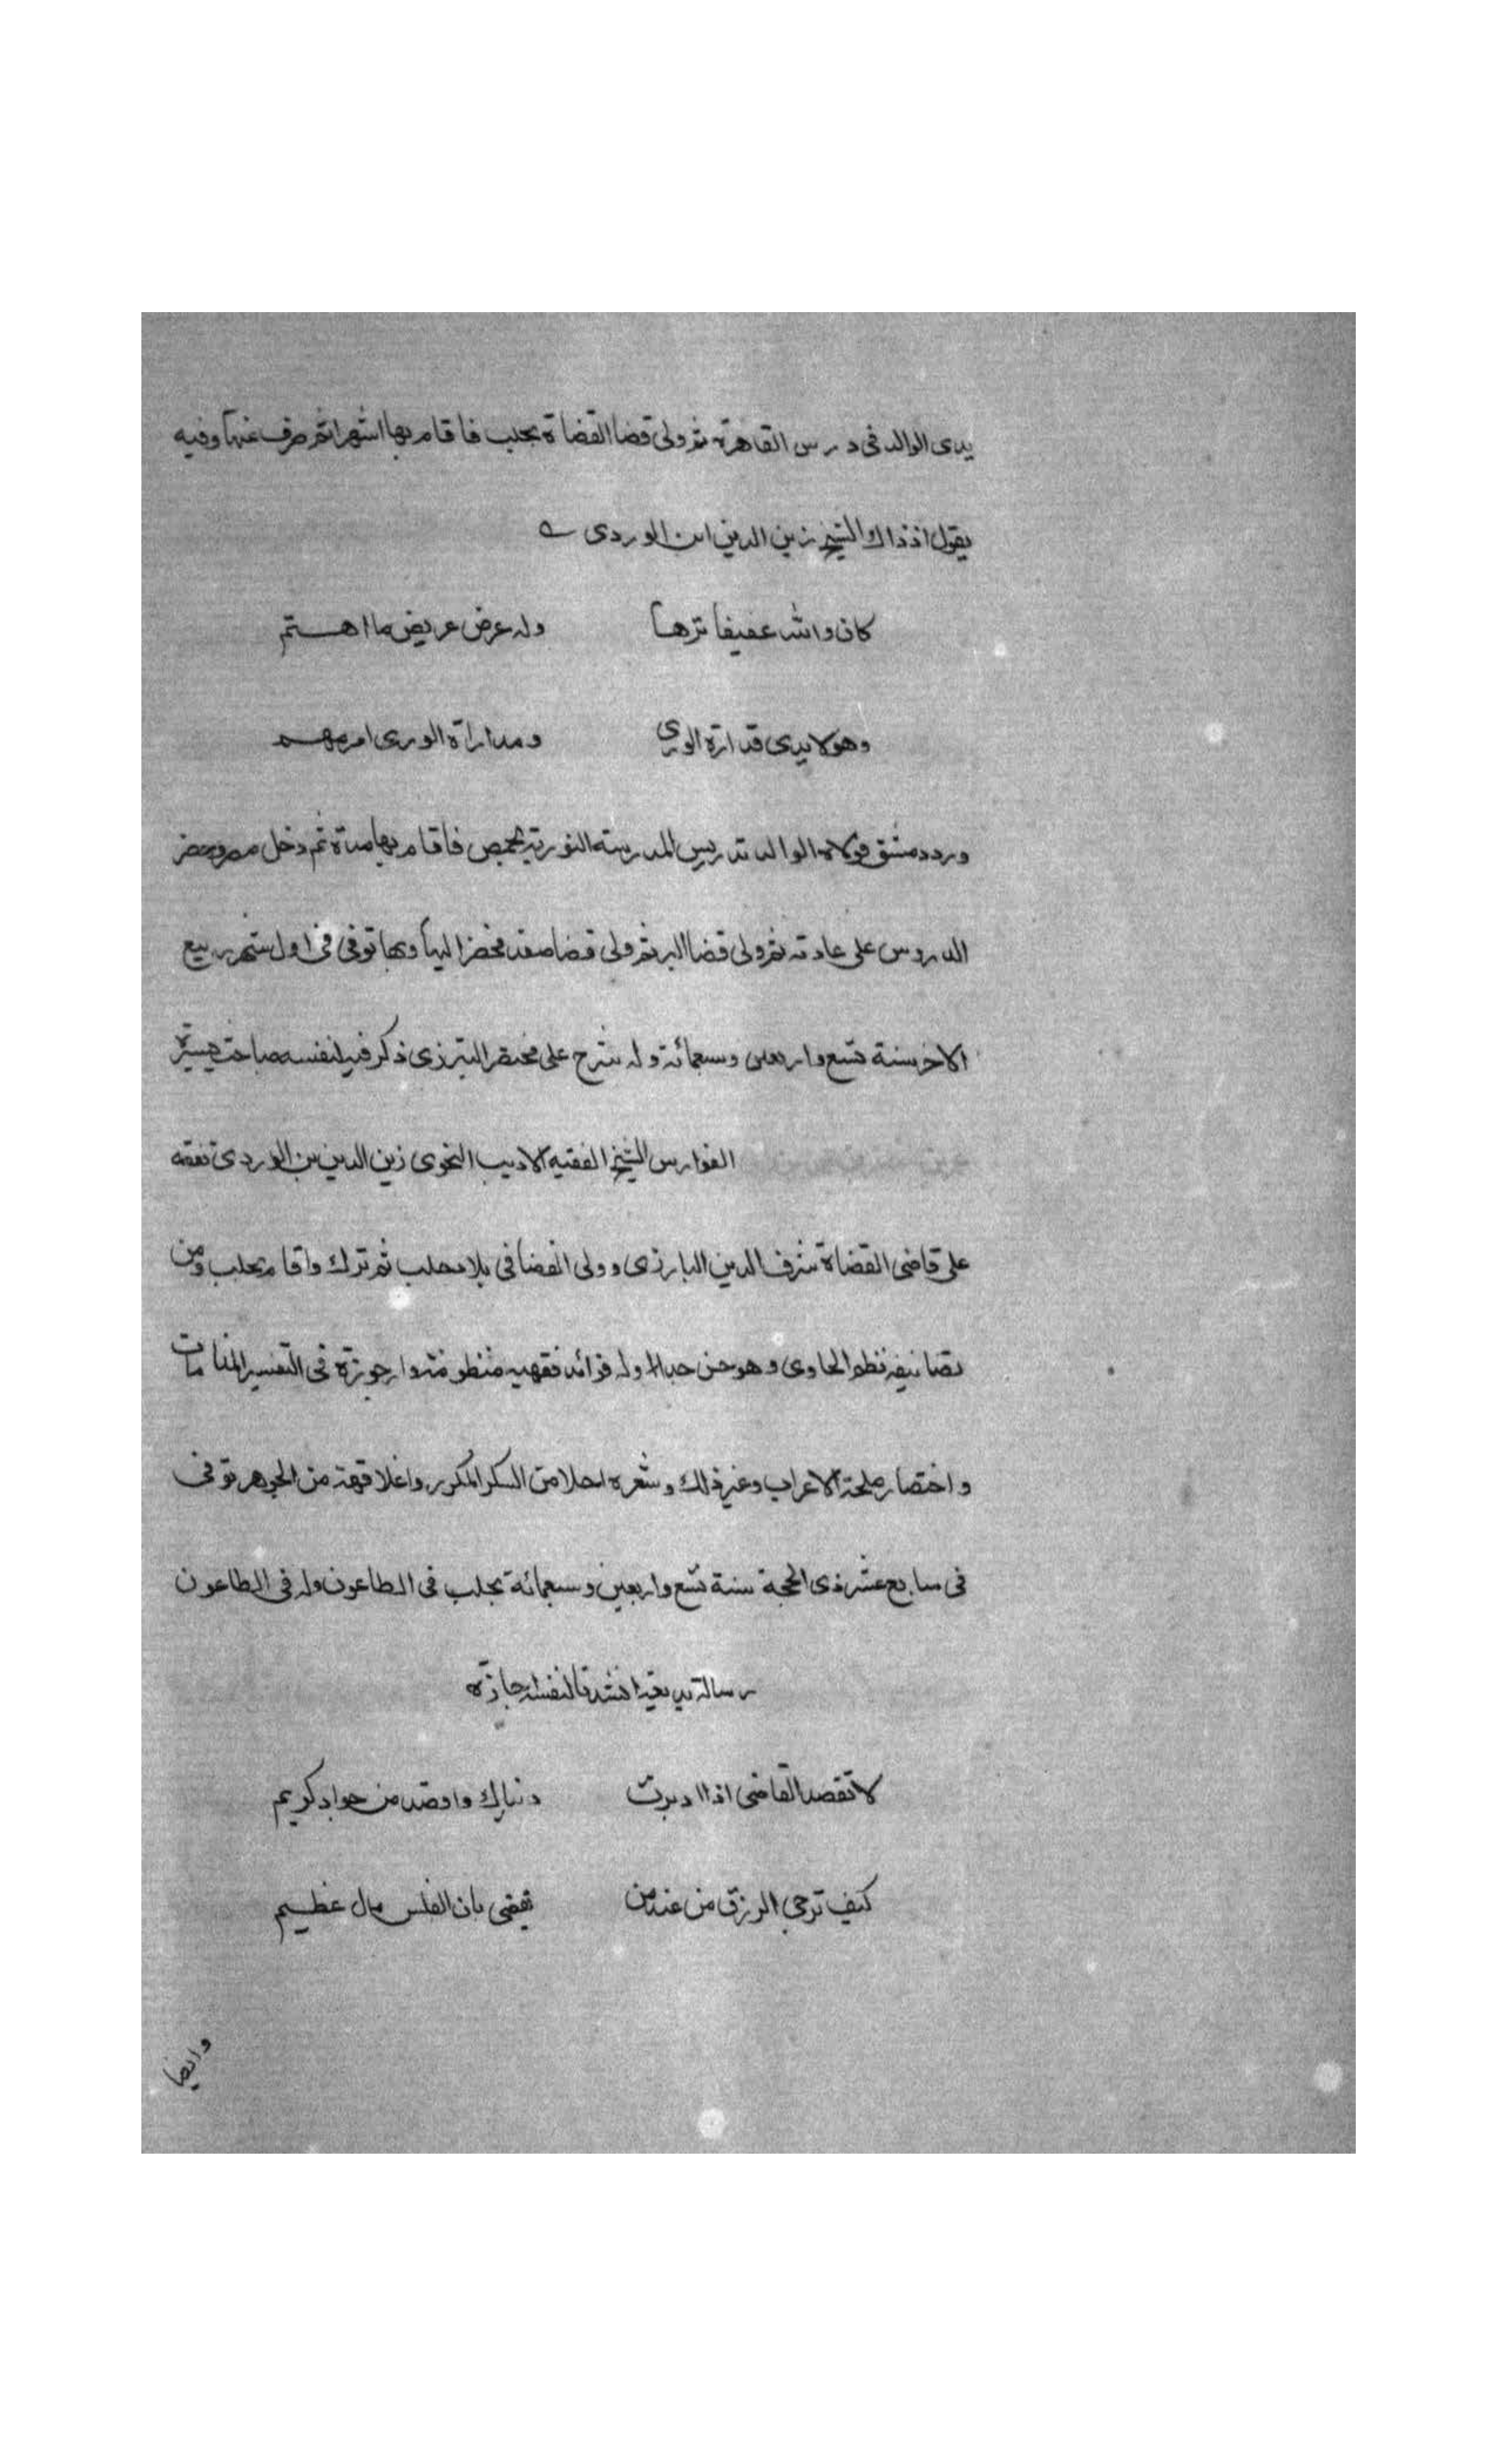 يدى الوالد فى درس القاهرة ثم ولى قضا القضاة بحلب فاقام بها اشهرا ثم صرف عنها وفيه
يقول اذ ذاك الشيخ زين الدين ابن الوردى
كان والله عفيفا نزها وله عرض عريض ما اهستم
وهو لا يدرى مداراة الورى ومداراة الورى امر مهم
ورد دمشق فولاه الوالد تدريس المدرسة النورية بحمص فاقام بها مدة ثم دخل مصر وحضر
الدروس على عادته ثم ولى قضا البر ثم ولى قضا صفد فحضر اليها وبها توفى فى اول شهر ربيع
الاخر سنة تسع واربعين وسبعمائة وله شرح على مختصر التبرزى ذكر فيه لنفسه مباحث يسيرة
الفوارس الشيخ الفقيه الاديب النحوى زين الدين بن الوردى تفقه
على قاضى القضاة شرف الدين البارزى وولى القضا فى بلاد حلب ثم ترك واقام بحلب ومن
تصانيفه نظم الحاوى وهو حسن جدا وله فوائد فقهيه منظومة وارجوزة فى التفسير المنامات
واختصار ملحة الاعراب وغير ذلك وشعره احلا من السكر المكرر واغلا قهة من الجوهر توفى
فى سابع عشر ذى الحجة سنة تسع واربعين وسبعمائة بحلب فى الطاعون وله فى الطاعون
رسالة بديعة انشدنا لنفسه اجازة
لا تقصد القاضى اذا ادبرت دنياك واقصد من جواد كريم
كيف ترجى الرزق من عند من يقضى بان الفلس مال عظيم
وايضا